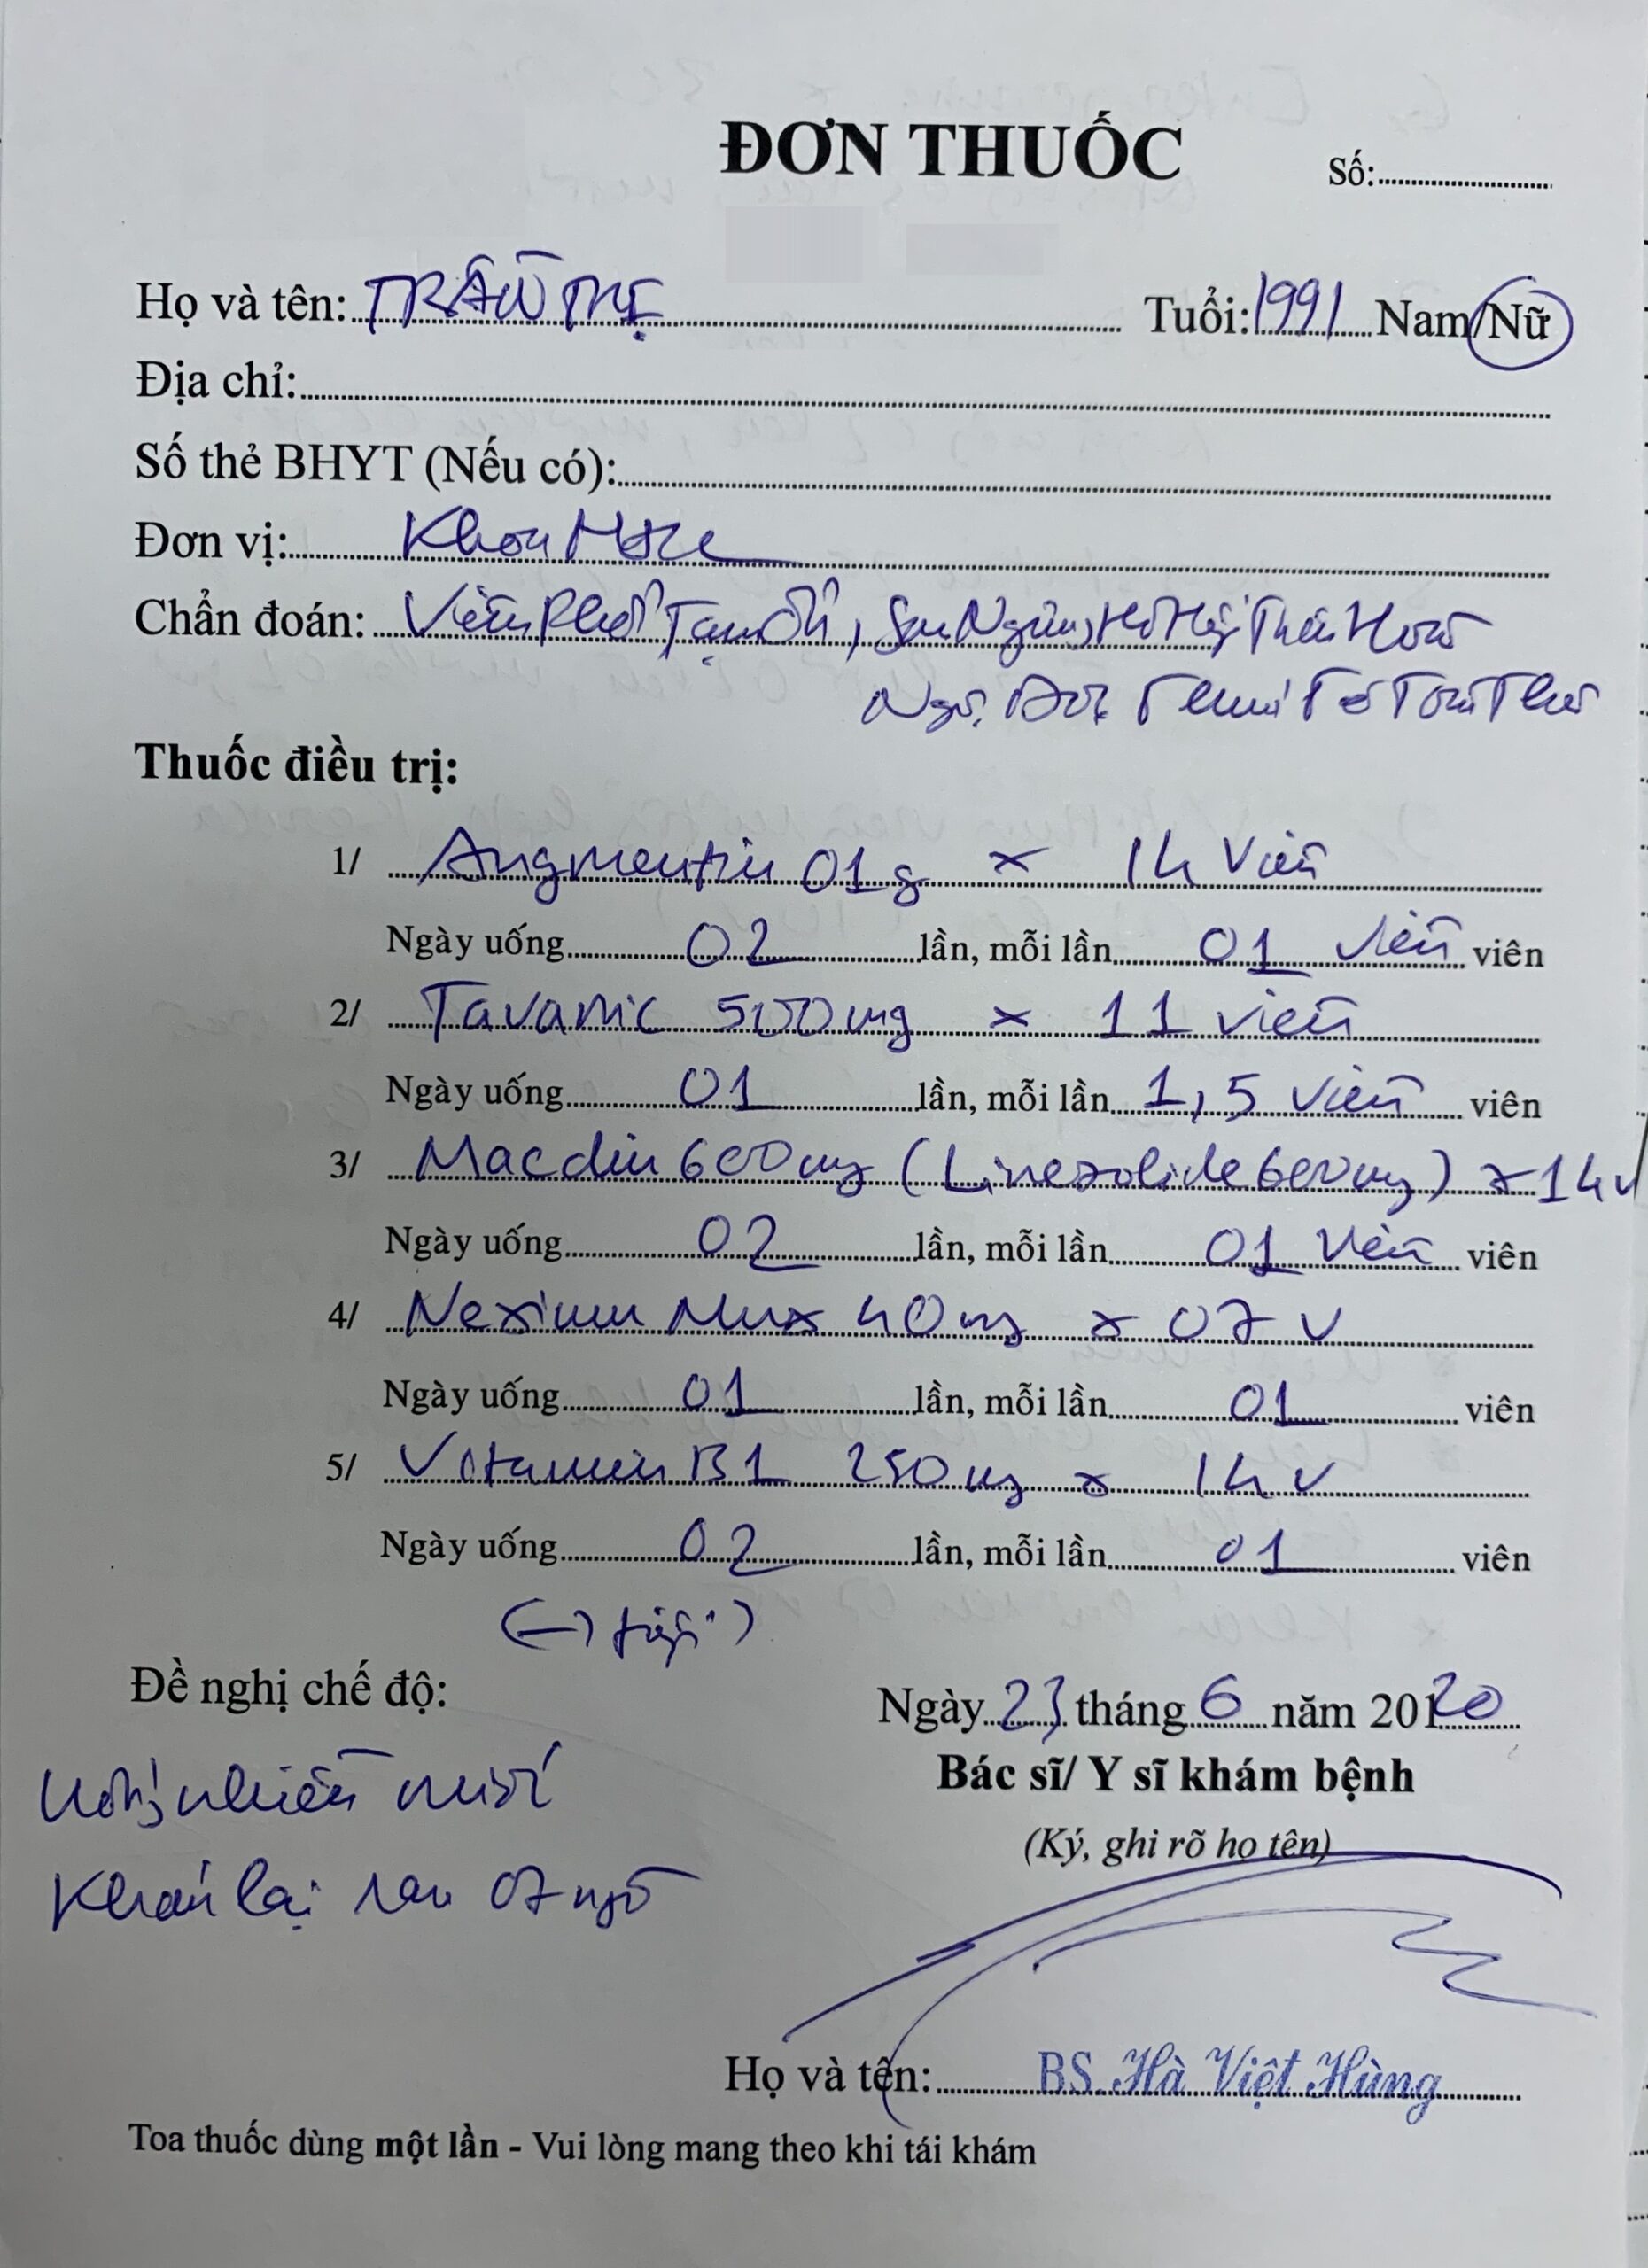 ĐƠN THUỐC
Số:
Họ và tên: TRẦN THỊ Tuổi: 1991 Nam/Nữ
Địa chỉ:
Số thẻ BHYT (Nếu có):
Đơn vị: Khoa
Chẩn đoán: Viêm Phổi Tạm Ổn, Sau Ngừng Hô Hấp Tuần Hoàn
Ngộ Độc Thuốc Tê Toàn Thân
Thuốc điều trị:
1/ Augmentin 01g x 14 Viên
Ngày uống 02 lần, mỗi lần 01 viên viên
2/ Tavanic 500mg x 11 viên
Ngày uống 01 lần, mỗi lần 1,5 viên viên
3/ Macdin 600mg (Linezolide 600mg) x 14v
Ngày uống 02 lần, mỗi lần 01 viên viên
4/ Nexium Mux 40mg x 07 v
Ngày uống 01 lần, mỗi lần 01 viên
5/ Vitamin B1 250mg x 14 v
Ngày uống 02 lần, mỗi lần 01 viên
(→ tiếp)
Đề nghị chế độ:
Ngày 23 tháng 6 năm 20120
Bác sĩ/ Y sĩ khám bệnh
Uống nhiều nước
(Ký, ghi rõ họ tên)
Khám lại sau 07 ngày
Họ và tên: BS. Hà Việt Hùng
Toa thuốc dùng một lần - Vui lòng mang theo khi tái khám